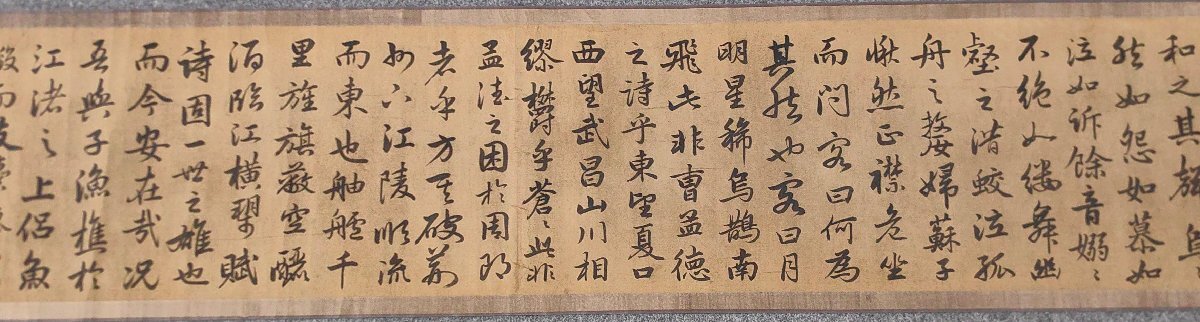 和之其聲
然如怨如慕如
泣如訴餘音嫋〻
不絕如縷舞幽
壑之潛蛟泣孤
舟之嫠婦蘇子
愀然正襟危坐
而問客曰何為
其然也客曰月
明星稀烏鵲南
飛此非曹孟德
之詩乎東望夏口
西望武昌山川相
繆欝乎蒼〻此非
孟德之困於周郎
者乎方其破荊
州下江陵順流
而東也舳艫千
里旌旗蔽空釃
酒臨江橫槊賦
詩固一世之雄也
而今安在哉況
吾與子漁樵於
江渚之上侶魚
蝦而友麋